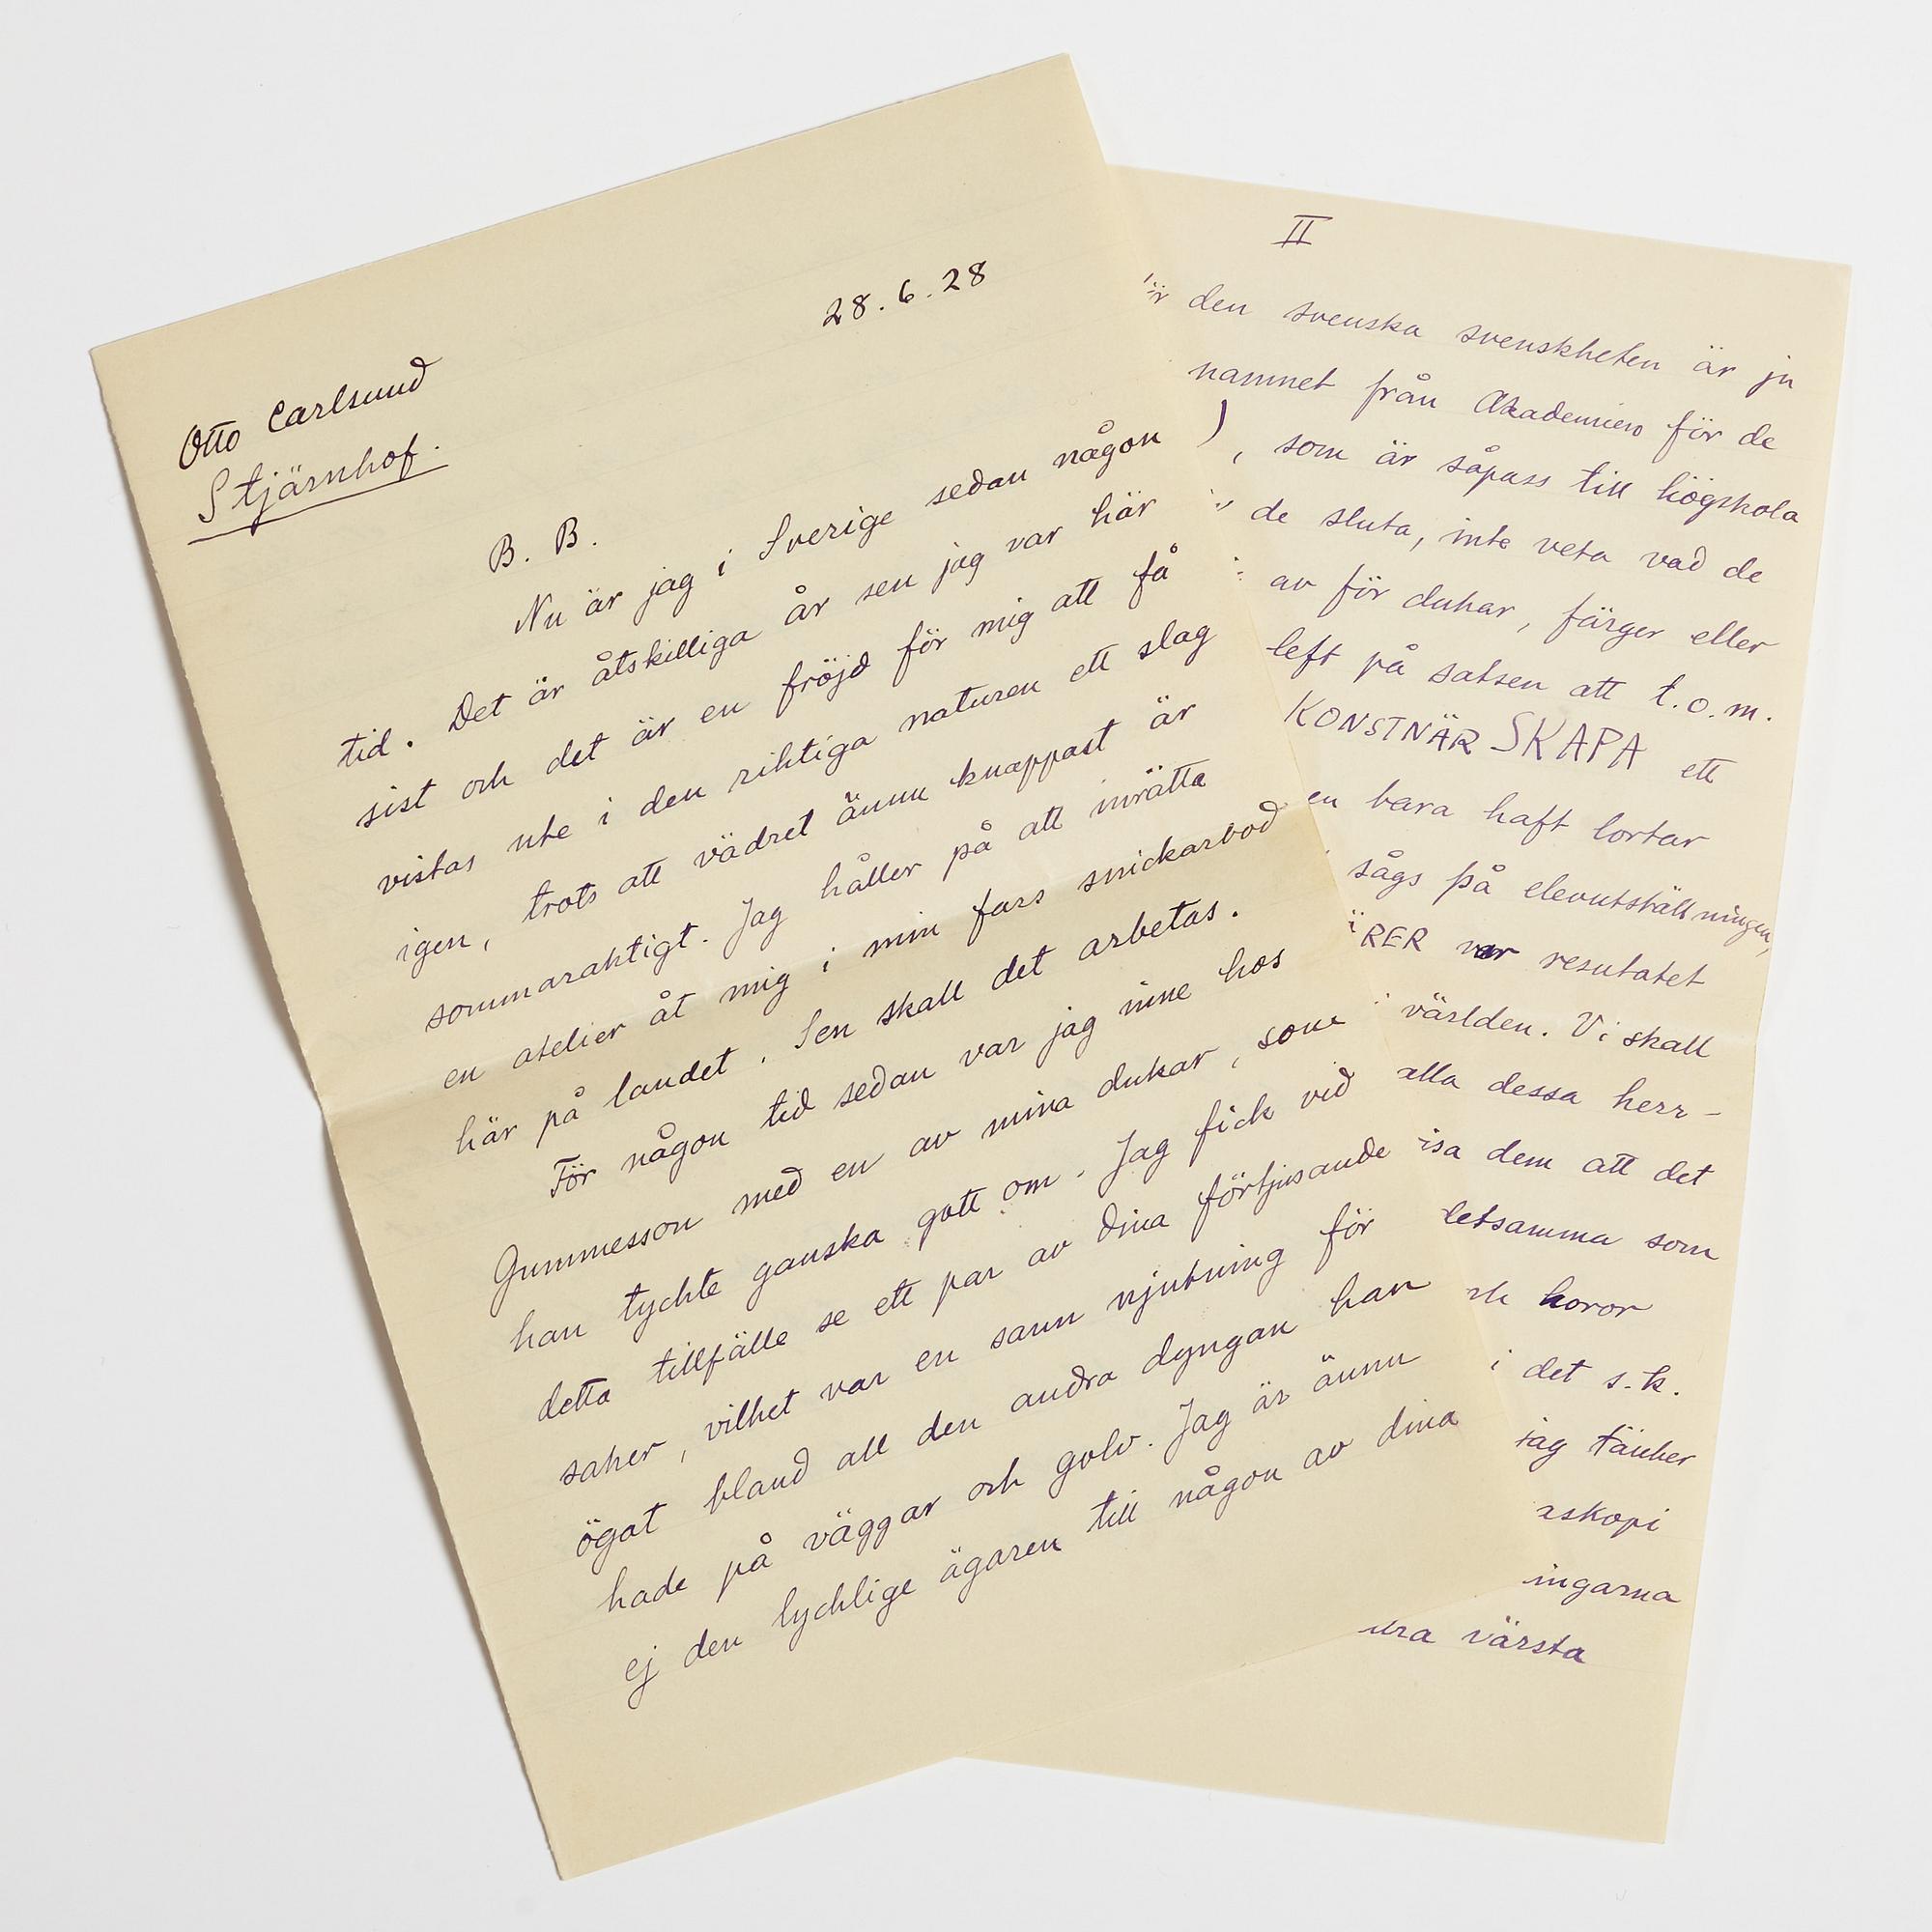 28.6.28
Otto Carlsund
Stjärnhof.
B. B.
Nu är jag i Sverige sedan någon
tid. Det är åtskilliga år sen jag var här
sist och det är en fröjd för mig att få
vistas ute i den riktiga naturen ett slag
igen, trots att vädret ännu knappast är
sommaraktigt. Jag håller på att inrätta
en atelier åt mig i min fars snickarbod
här på landet. Sen skall det arbetas.
För någon tid sedan var jag inne hos
Gummesson med en av mina dukar, som
han tyckte ganska gott om. Jag fick vid
detta tillfälle se ett par av dina förtjusande
saker, vilket var en sann njutning för
ögat bland all den andra dyngan han
hade på väggar och golv. Jag är ännu
ej den lycklige ägaren till någon av dina
II
den svenska svenskheten är ju
namnet från Akademien för de
, som är såpass till högskola
de sluta, inte veta vad de
av för dukar, färger eller
left på satsen att t.o.m.
KONSTNÄR SKAPA ett
en bara haft lortar
sågs på elevutställningen,
ÄRER var resutatet
i världen. Vi skall
alla dessa herr-
isa dem att det
letsamma som
ch horor
i det s.k.
jag tänker
askopi
ingarna
ura värsta